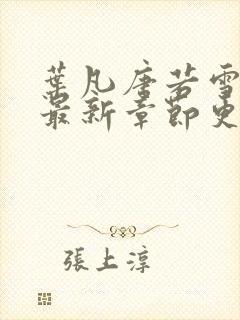 葉凡唐若雪
最新章節更
張上淳